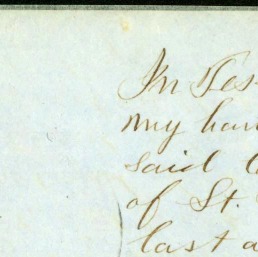 In Tes
my han
said C
of St.
last a